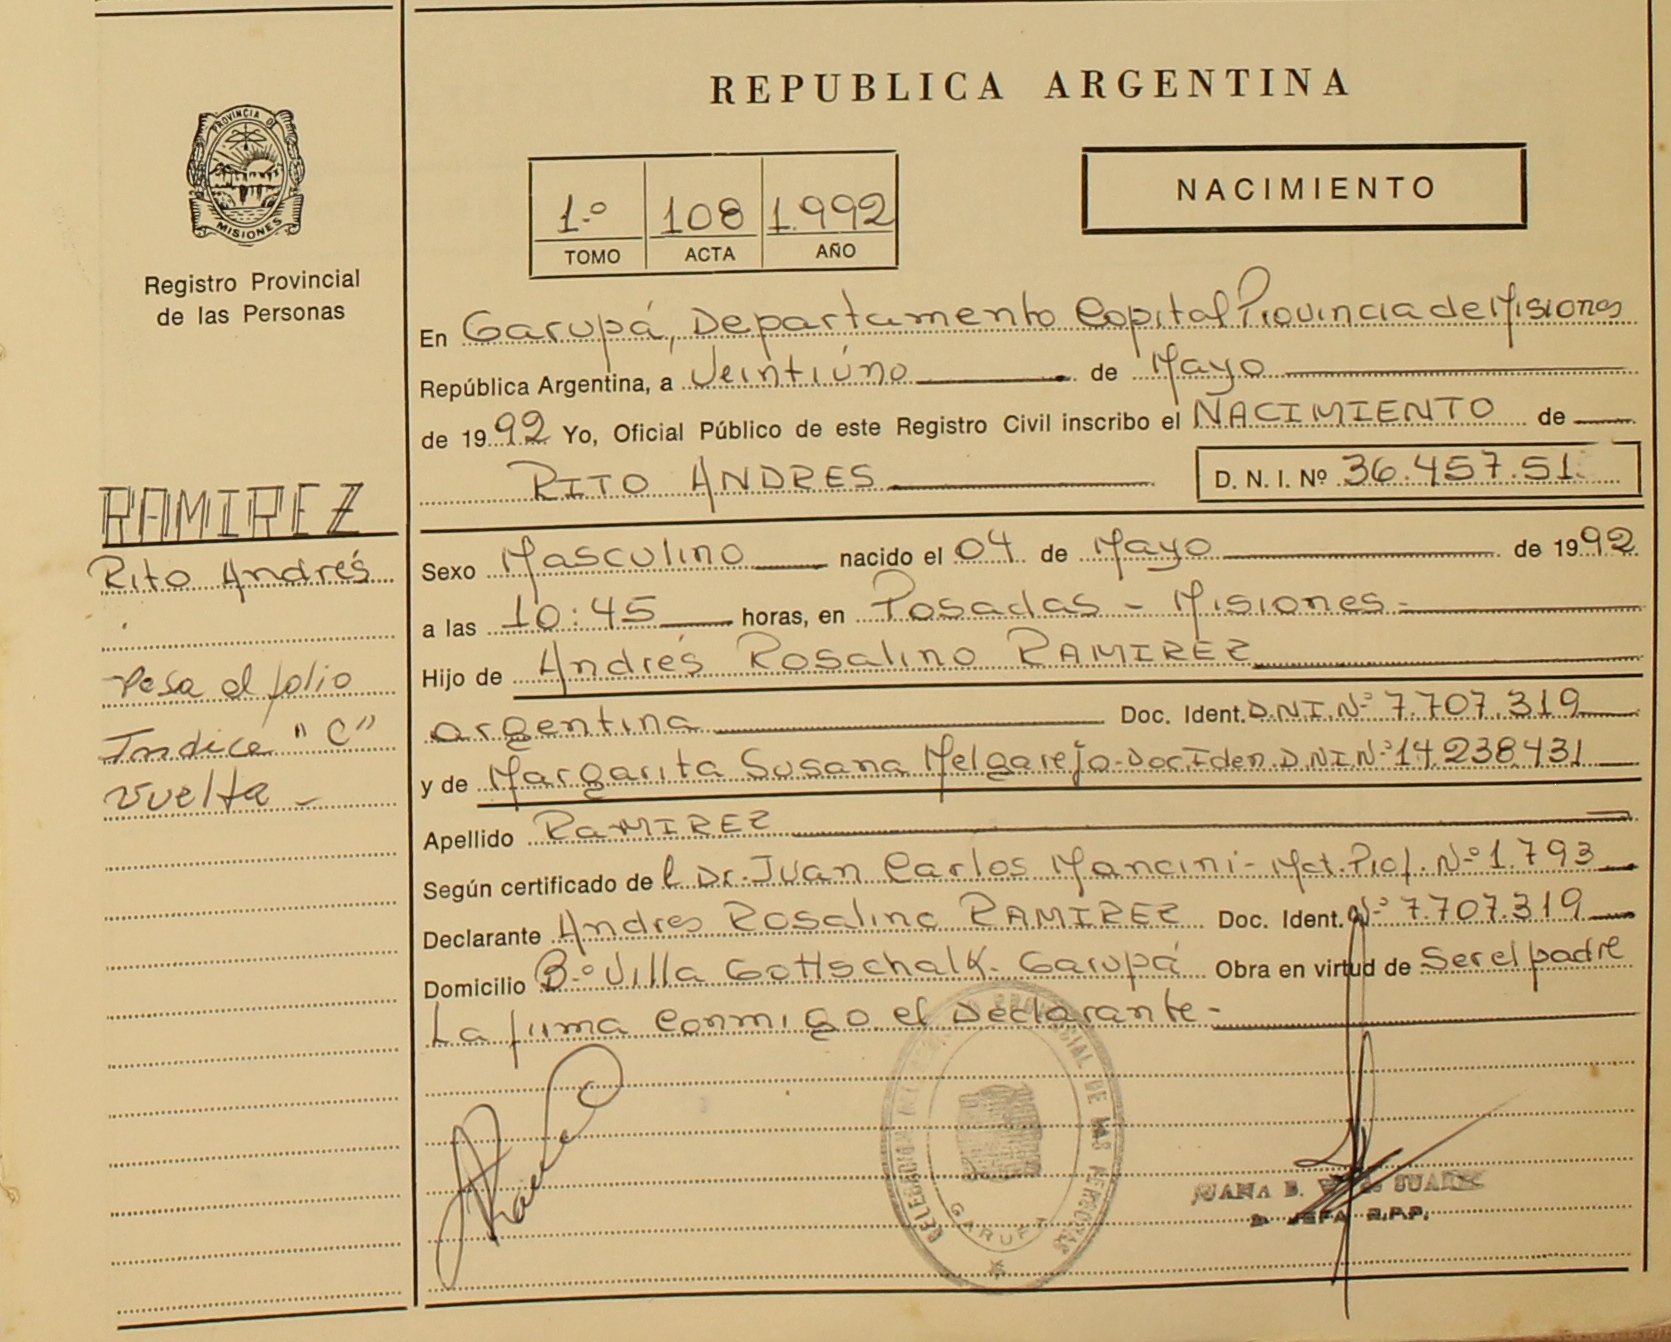 REPUBLICA ARGENTINA
PROVINCIA DE
MISIONES
Registro Provincial
de las Personas
1.º 108 1.992
TOMO ACTA AÑO
NACIMIENTO
En Garupá, Departamento Capital Provincia de Misiones
República Argentina, a Veintiúno de Mayo
de 1992 Yo, Oficial Público de este Registro Civil inscribo el NACIMIENTO de
RITO ANDRES D. N. I. Nº 36.457.51
RAMIREZ
Rito Andrés
Pasa al folio
Indice "C"
vuelta -
Sexo Masculino nacido el 04 de Mayo de 1992
a las 10:45 horas, en Posadas - Misiones-
Hijo de Andrés Rosalino RAMIREZ
argentina Doc. Ident. D.N.I. Nº 7.707.319
y de Margarita Susana Melgarejo-Doc.Iden.D.N.I.Nº14.238.431
Apellido RAMIREZ
Según certificado del Dr. Juan Carlos Mancini - Mat. Prof. Nº 1.793
Declarante Andres Rosalino RAMIREZ Doc. Ident. Nº 7.707.319
Domicilio Bº Villa Gottschalk. Garupá Obra en virtud de Ser el padre
La firma conmigo el Declarante-
PROVINCIAL DE LAS PERSONAS
GARUPA
JUANA B. SUAREZ
JEFA R.P.P.